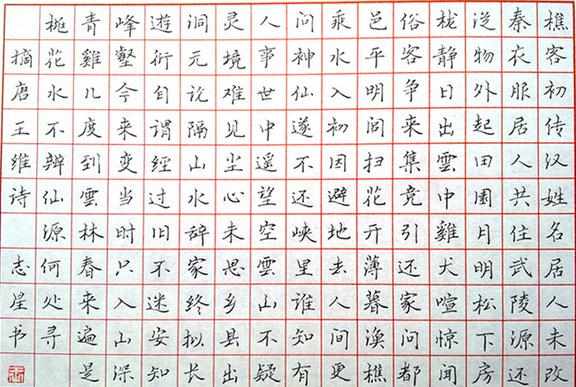 樵客初传汉姓名居人未改
秦衣服居人共住武陵源还
从物外起田园月明松下房
栊静日出雲中雞犬喧惊闻
俗客争来集竞引还家问都
邑平明闾扫花开薄暮渔樵
乘水入初因避地去人间更
问神仙遂不还峡里谁知有
人事世中遥望空雲山不疑
灵境难见尘心未思乡县出
洞元论隔山水辞家终拟长
遊衍自谓经过旧不迷安知
峰壑今来变当时只入山深
青雞几度到雲林春来遍是
桃花水不辨仙源何处寻
摘唐王维诗 志星书